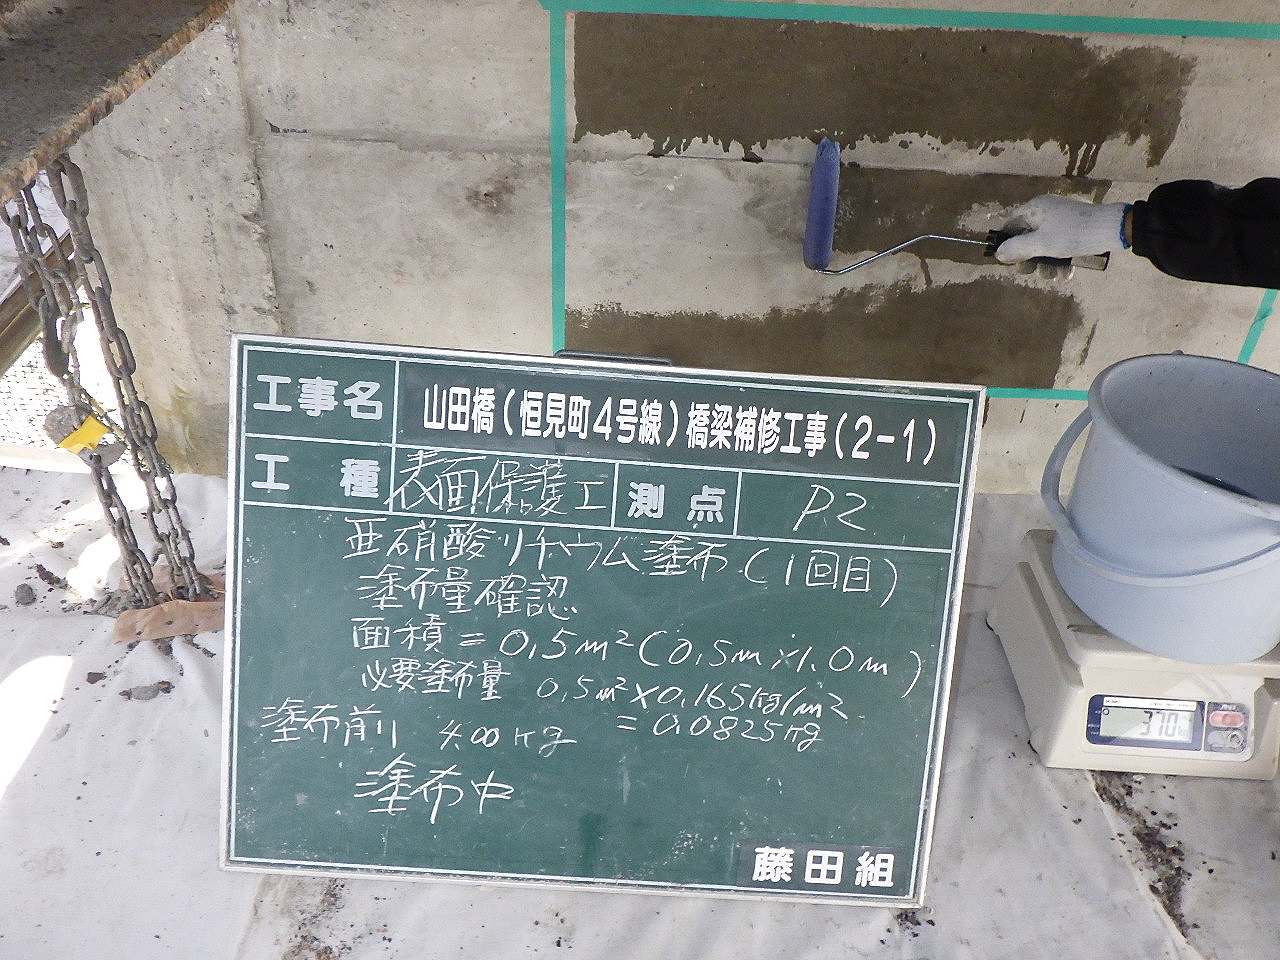 工事名 山田橋(恒見町4号線)橋梁補修工事(2-1)
工種 表面保護工 測点 P2
亜硝酸リチウム塗布(1回目)
塗布量確認
面積=0.5m²(0.5m×1.0m)
必要塗布量 0.5m²×0.165kg/m²
=0.0825kg
塗布前 4.00kg
塗布中
藤田組
370